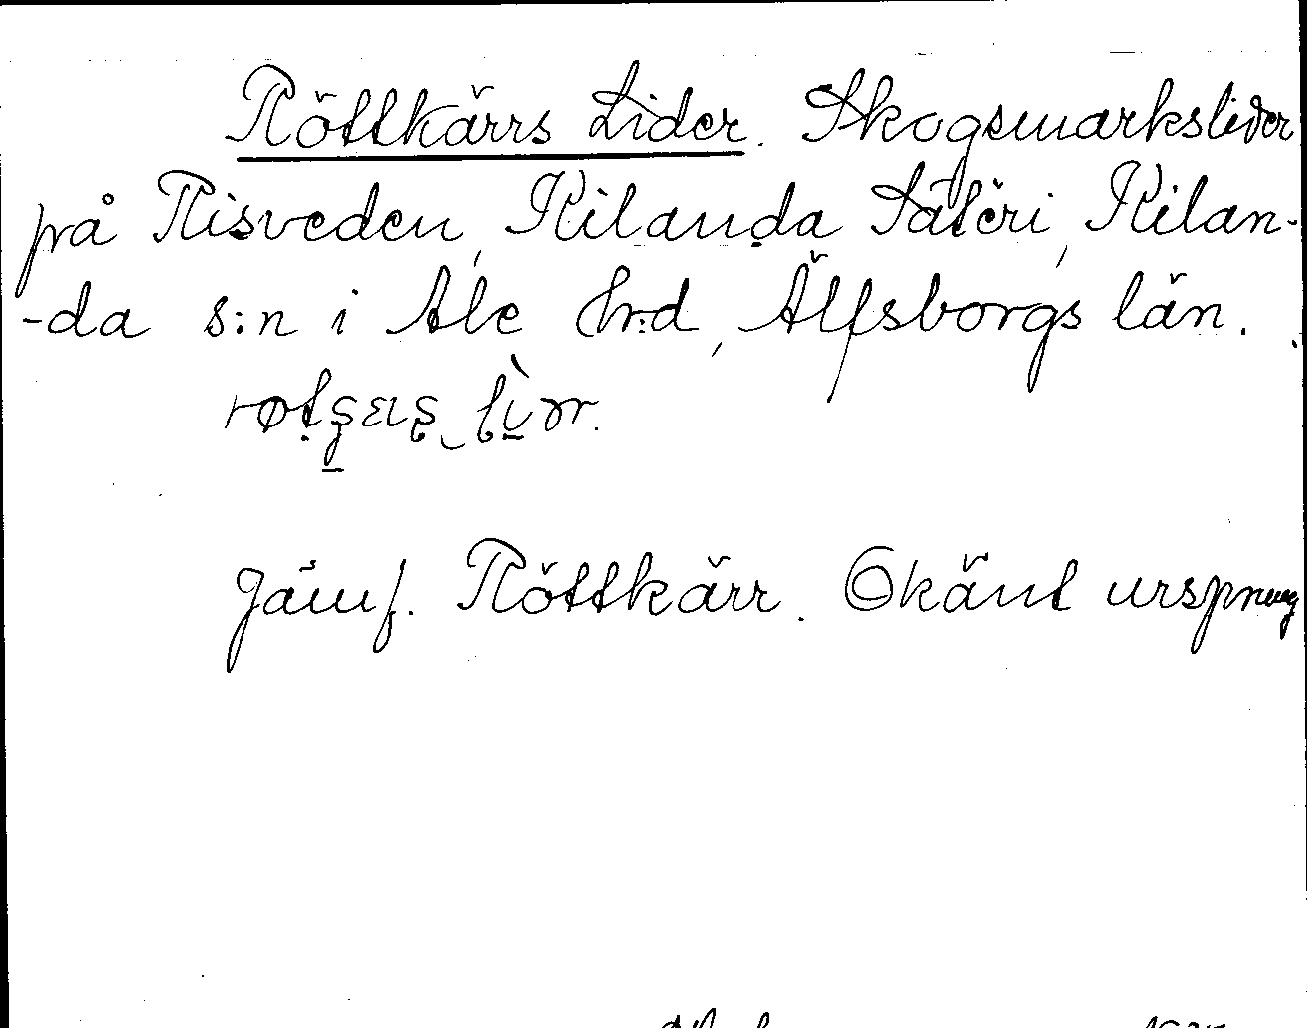 Röttkärrs Lider. Skogsmarkslider
på Risveden, Kilanda Säteri, Kilan-
-da s:n i Ale hr:d, Älfsborgs län.
Jämf. Röttkärr. Okänt ursprung